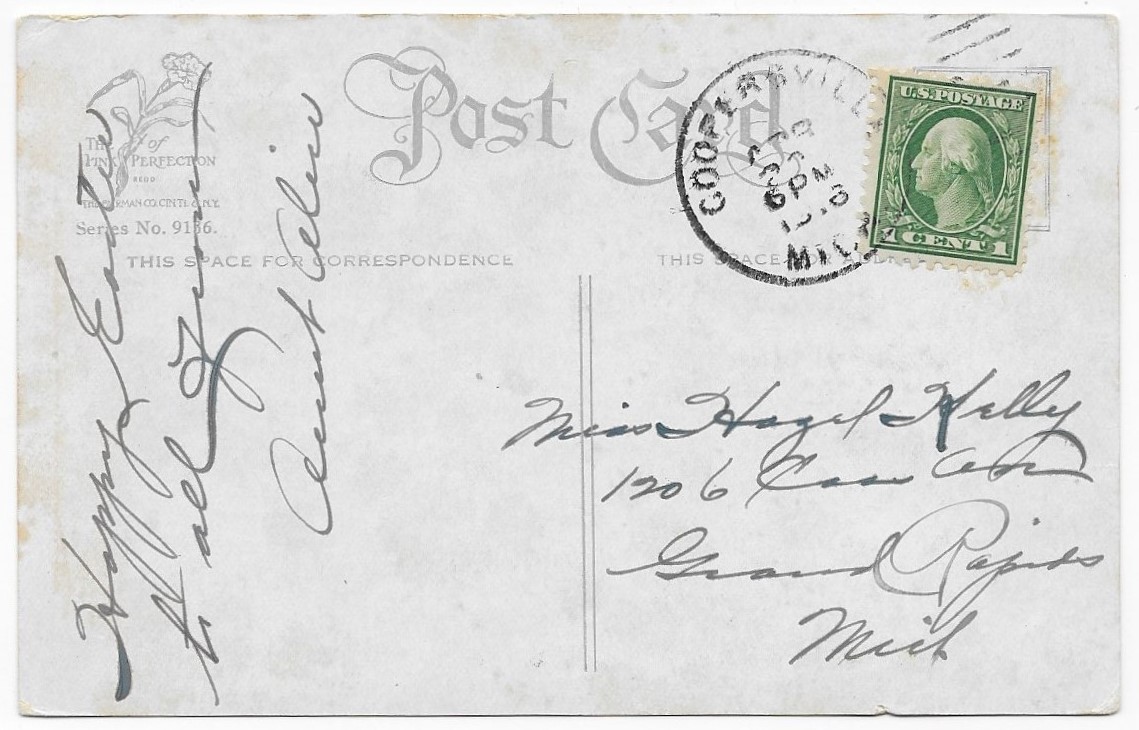 Post Card
The of
Pink Perfection
REGD
THE GIBSON ART CO. CINTI. & N.Y.
Series No. 9136.
THIS SPACE FOR CORRESPONDENCE
THIS SPACE FOR
COOPERSVILLE
6 PM
MICH
U.S. POSTAGE
1 CENT 1
Happy Easter
to all From
Aunt
Miss Hazel Kelly
1206 Cass Ave
Grand Rapids
Mich